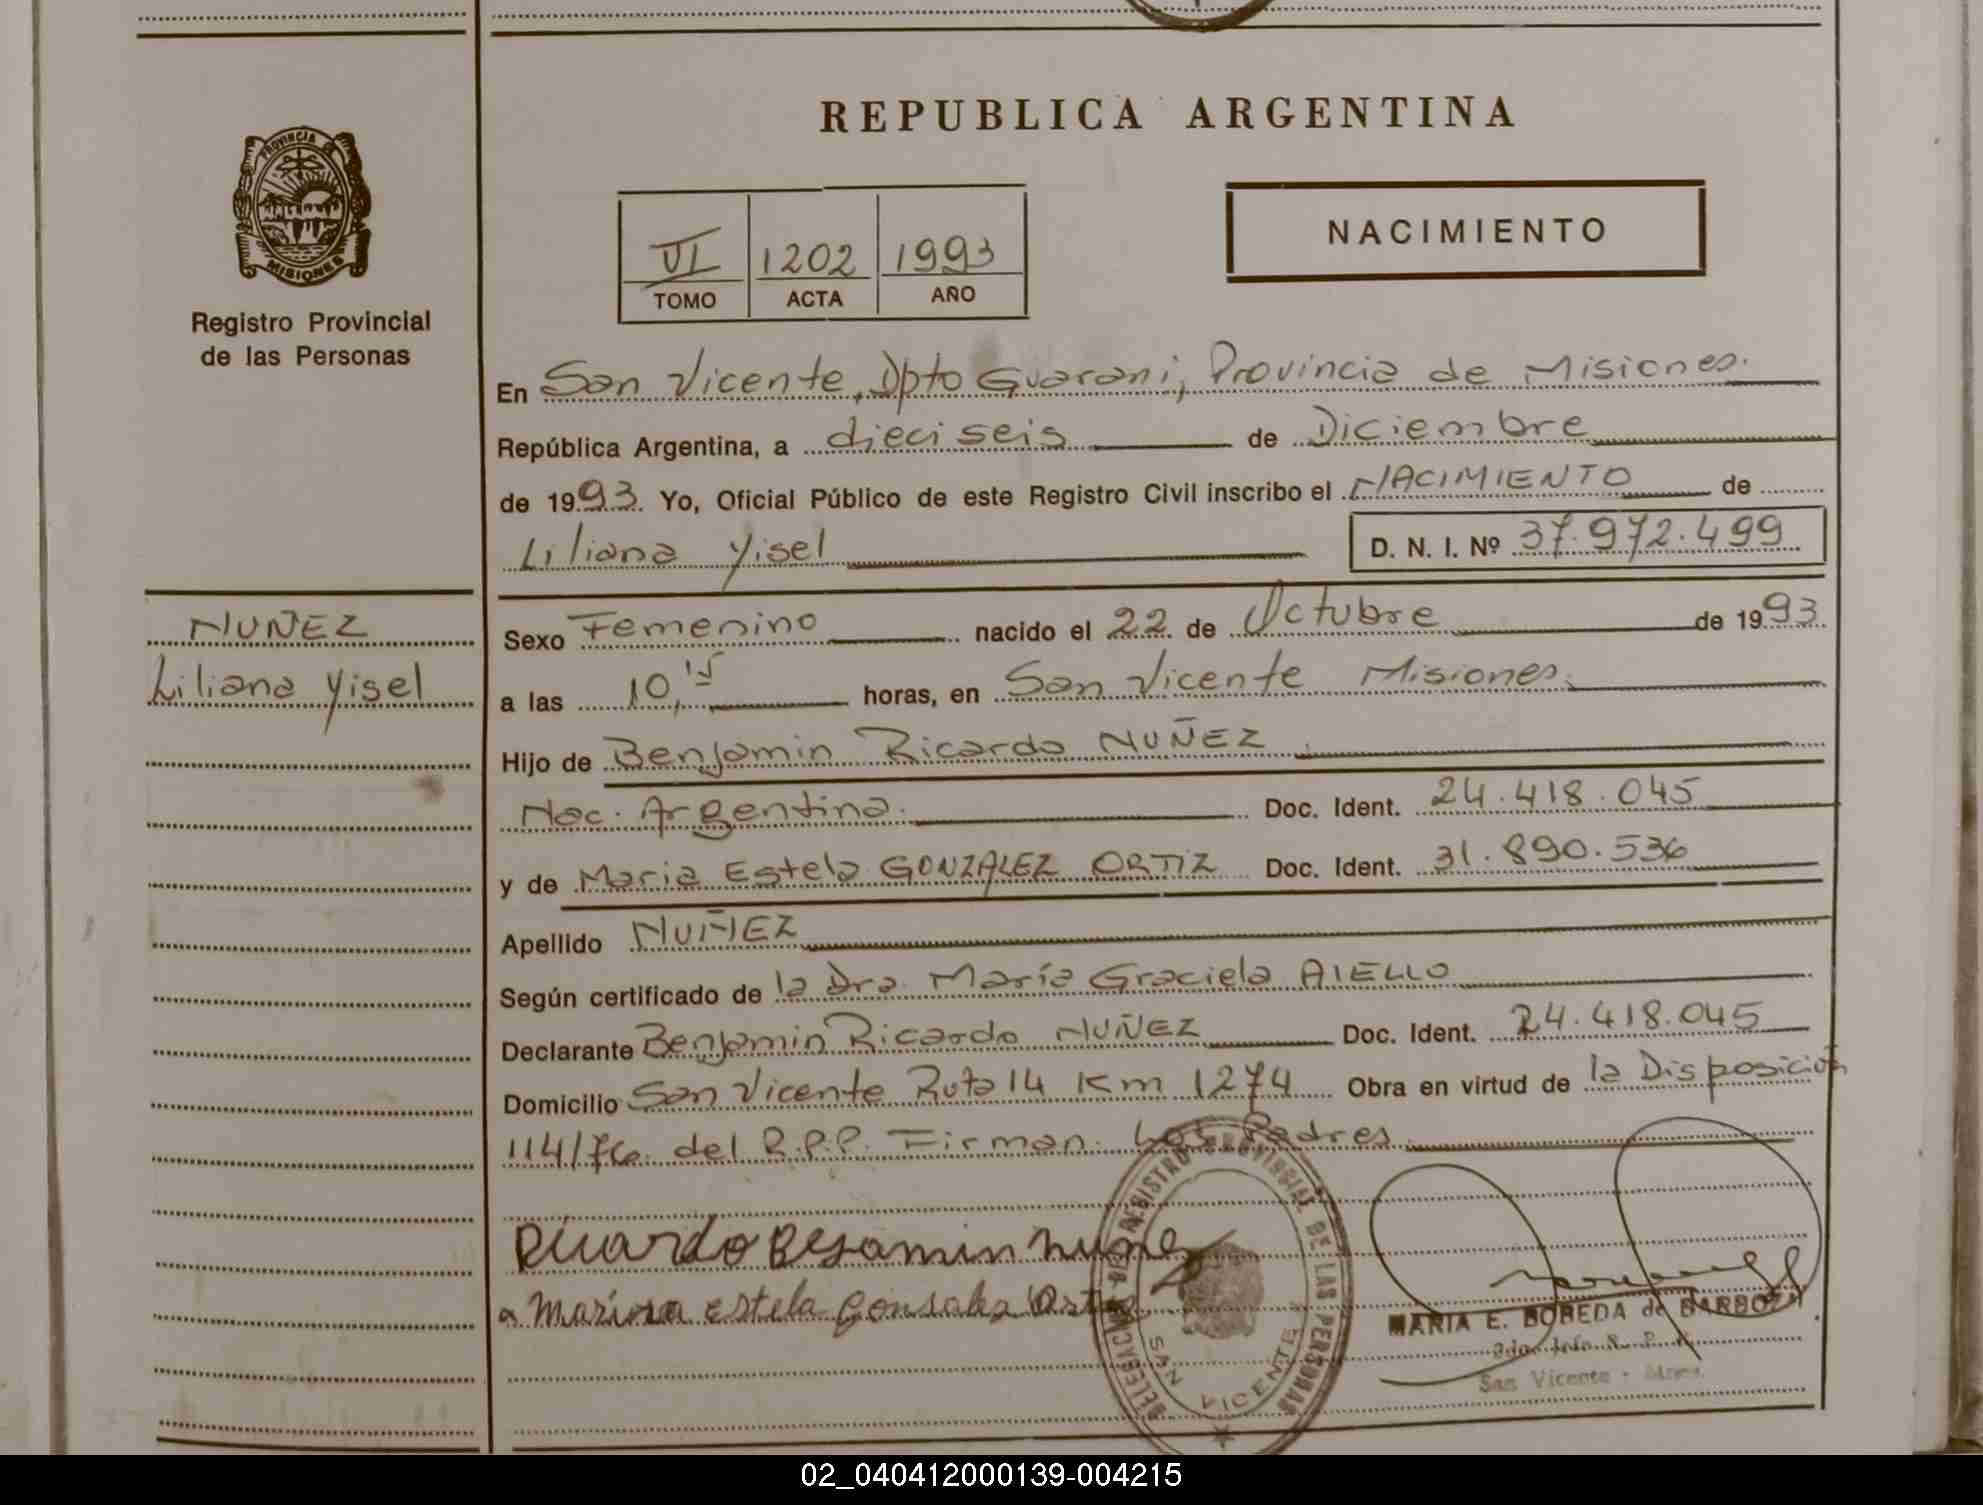 PROVINCIA DE
MISIONES
Registro Provincial
de las Personas
REPUBLICA ARGENTINA
VI 1202 1993
TOMO ACTA AÑO
NACIMIENTO
En San Vicente, Dpto Guarani, Provincia de Misiones.
República Argentina, a dieciseis de Diciembre
de 1993. Yo, Oficial Público de este Registro Civil inscribo el NACIMIENTO de
Liliana Yisel D. N. I. Nº 37.972.499
NUÑEZ
Liliana Yisel
Sexo Femenino nacido el 22 de Octubre de 1993
a las 10,15 horas, en San Vicente Misiones.
Hijo de Benjamin Ricardo NUÑEZ
Nac. Argentina. Doc. Ident. 24.418.045
y de Maria Estela GONZALEZ ORTIZ Doc. Ident. 31.890.536
Apellido NUÑEZ
Según certificado de la Dra. María Graciela AIELLO
Declarante Benjamin Ricardo NUÑEZ Doc. Ident. 24.418.045
Domicilio San Vicente Ruta 14 Km 1274 Obra en virtud de la Disposición
114/76. del R.P.P. Firman. Los Padres
Ricardo Besamin nuñez
Estela Gonsales
DELEGACION REGISTRO PROVINCIAL DE LAS PERSONAS
SAN VICENTE
MARIA E. BOBEDA de BARBOZA
San Vicente - Mnes.
02_040412000139-004215